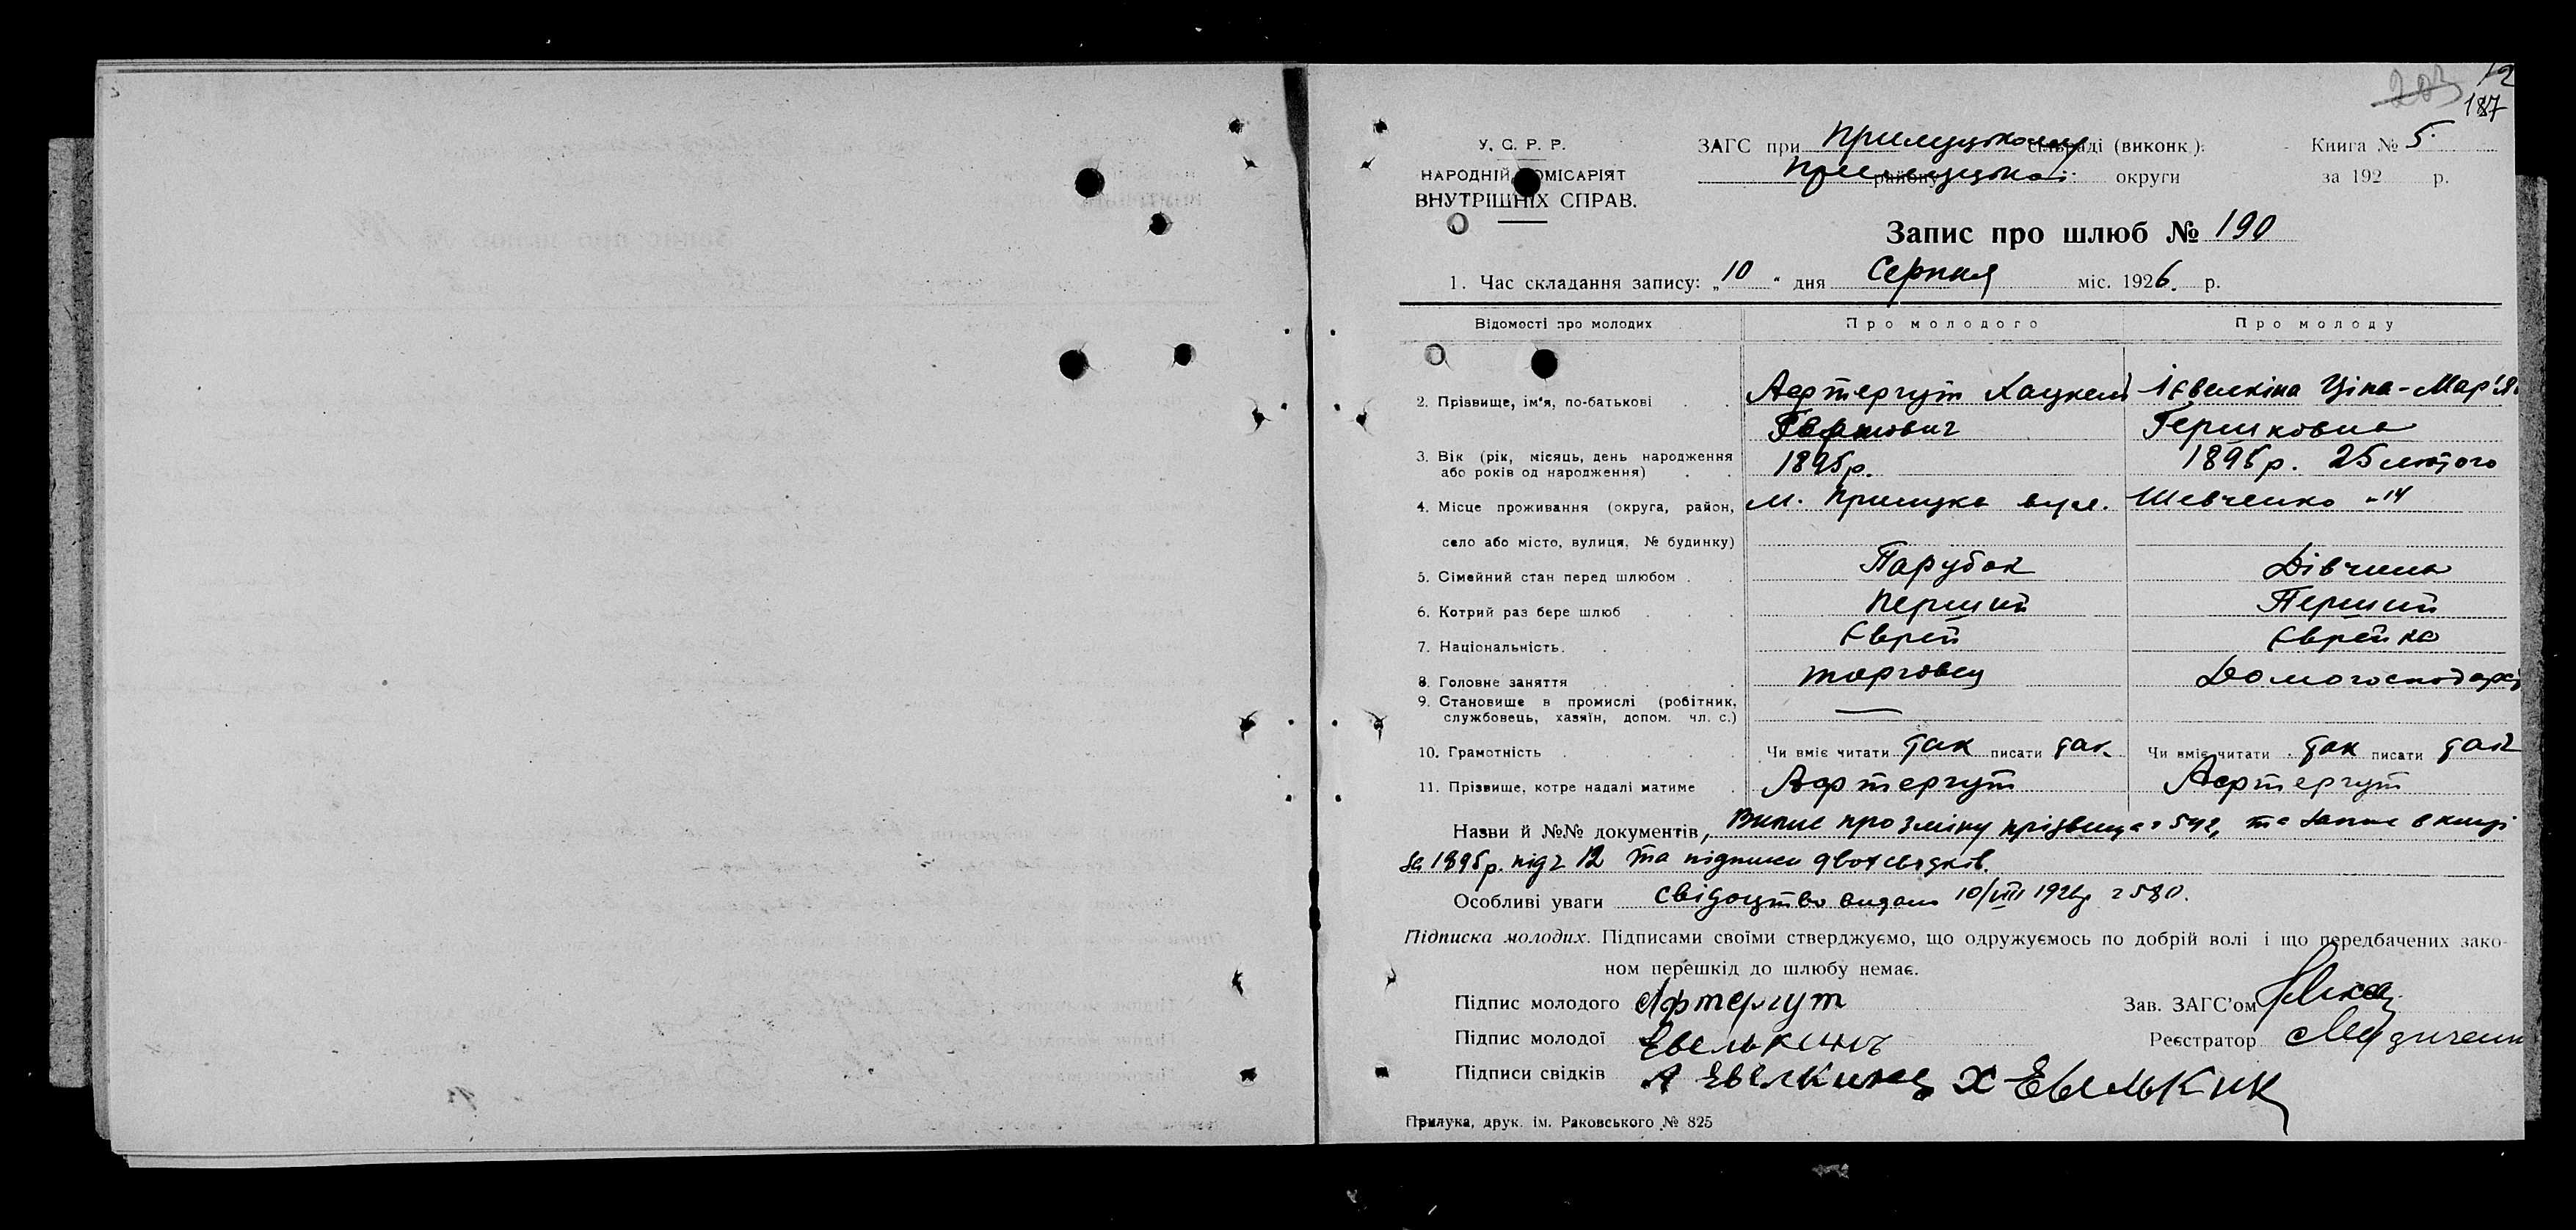 187
У. С. Р. Р.
НАРОДНІЙ КОМІСАРІЯТ
ВНУТРІШНІХ СПРАВ.
ЗАГС при Прилуцькому сільраді (виконк.)
Книга № 5
Прилуцької району округи
за 192 р.
Запис про шлюб № 190
1. Час складання запису: „10“ дня Серпня міс. 1926. р.
Відомості про молодих
Про молодого
Про молоду
2. Прізвище, ім'я, по-батькові
Афтергут Хацкель
Євелкіна Ціна-Мар'я
Гершковна
3. Вік (рік, місяць, день народження або років од народження)
1895р.
1895р. 25 лютого
4. Місце проживання (округа, район, село або місто, вулиця, № будинку)
м. Прилука вул. Шевченко 14
5. Сімейний стан перед шлюбом
Парубок
Дівчина
6. Котрий раз бере шлюб
Перший
Перший
7. Національність
Єврей
Єврейка
8. Головне заняття
торговец
Домогосподарка
9. Становище в промислі (робітник, службовець, хазяїн, допом. чл. с.)
—
10. Грамотність
Чи вміє читати так писати так
Чи вміє читати так писати так
11. Прізвище, котре надалі матиме
Афтергут
Афтергут
Назви й №№ документів, Випис про зміну прізвища 592, та запис в книзі
за 1895р. під ч 12 та підписи двох свідків.
Особливі уваги свідоцтво видано 10/VIII 1926р ч 580.
Підписка молодих. Підписами своїми стверджуємо, що одружуємось по добрій волі і що передбачених зако-
ном перешкід до шлюбу немає.
Підпис молодого Афтергут
Зав. ЗАГС'ом
Підпис молодої Евелькинъ
Реєстратор
Підписи свідків А Евелкинъ Х Евелькин
Прилука, друк. ім. Раковського № 825